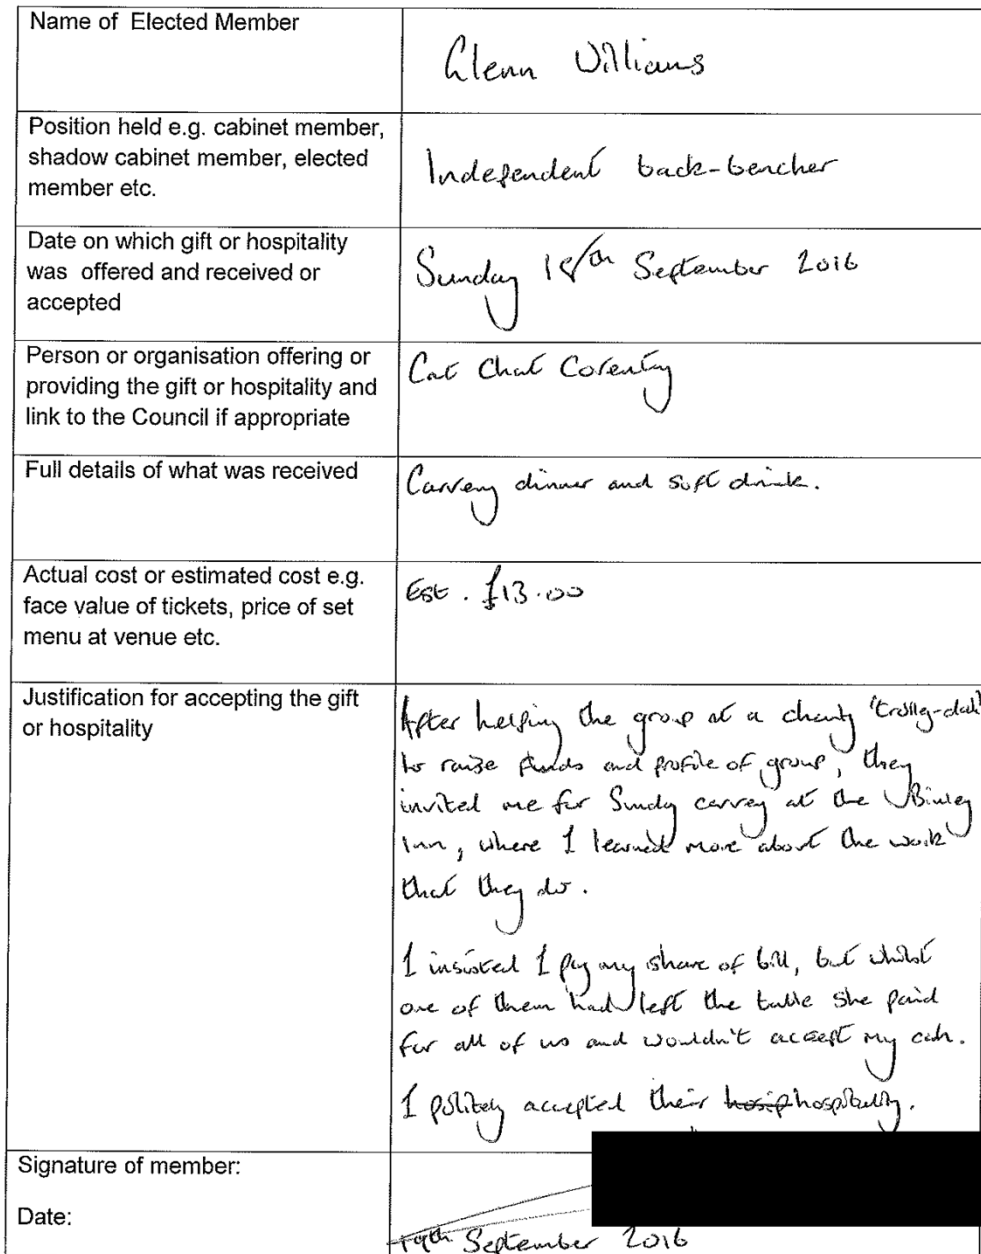 Name of Elected Member
Glenn Williams
Position held e.g. cabinet member,
shadow cabinet member, elected
member etc.
Independent back-bencher
Date on which gift or hospitality
was offered and received or
accepted
Sunday 18th September 2016
Person or organisation offering or
providing the gift or hospitality and
link to the Council if appropriate
Cat Chat Coventry
Full details of what was received
Carvery dinner and soft drink.
Actual cost or estimated cost e.g.
face value of tickets, price of set
menu at venue etc.
Est. £13.00
Justification for accepting the gift
or hospitality
After helping the group at a charity 'trolley-dash'
to raise funds and profile of group, they
invited me for Sunday carvery at the Binley
Inn, where I learned more about the work
that they do.
I insisted I pay my share of bill, but whilst
one of them had left the table she paid
for all of us and wouldn't accept my cash.
I politely accepted their hosip hospitality.
Signature of member:
Date:
19th September 2016